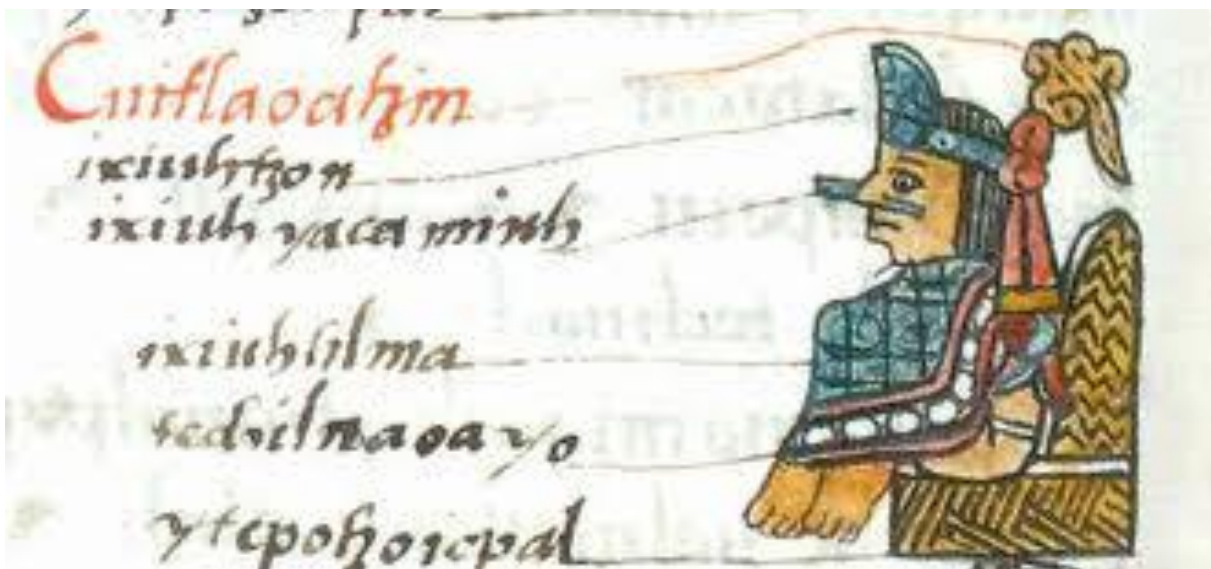 Cuitlaoatzin
ixiuhtzon
ixiuh yaca miuh
ixiuhtilma
techilnaoa yo
ytepotzoicpal